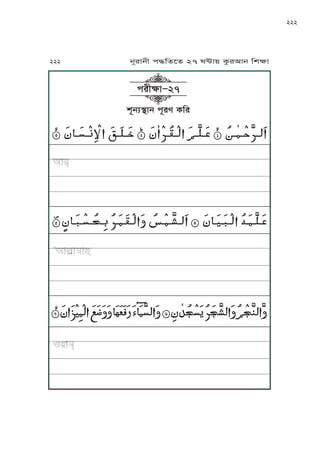 ২২২
২২২ নূরানী পদ্ধতিতে ২৭ ঘন্টায় কুরআন শিক্ষা
পরীক্ষা-২৭
শূন্যস্থান পূরণ করি
اَلرَّحْمٰنُ ۝١ عَلَّمَ الْقُرْاٰنَ ۝٢ خَلَقَ الْاِنْسَانَ ۝٣
আর্
عَلَّمَهُ الْبَيَانَ ۝٤ اَلشَّمْسُ وَالْقَمَرُ بِحُسْبَانٍ ۝٥
وَّالنَّجْمُ وَالشَّجَرُ يَسْجُدٰنِ ۝٦ وَالسَّمَآءَ رَفَعَهَا وَوَضَعَ الْمِيْزَانَ ۝٧
ওয়ান্